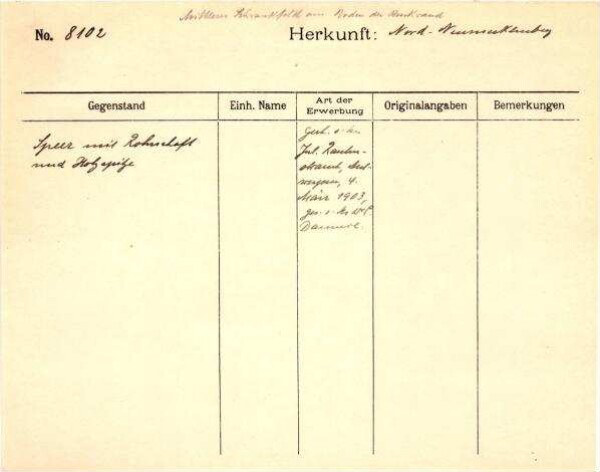 Mittleres Schrankfeld am Boden der Rückwand
No. 8102
Herkunft: Nord-Neumecklenburg
Gegenstand
Einh. Name
Art der Erwerbung
Originalangaben
Bemerkungen
Speer mit Rohrschaft
und Holzspitze
Gesch. v. den
Jul.
4.
März 1903,
ges. v.